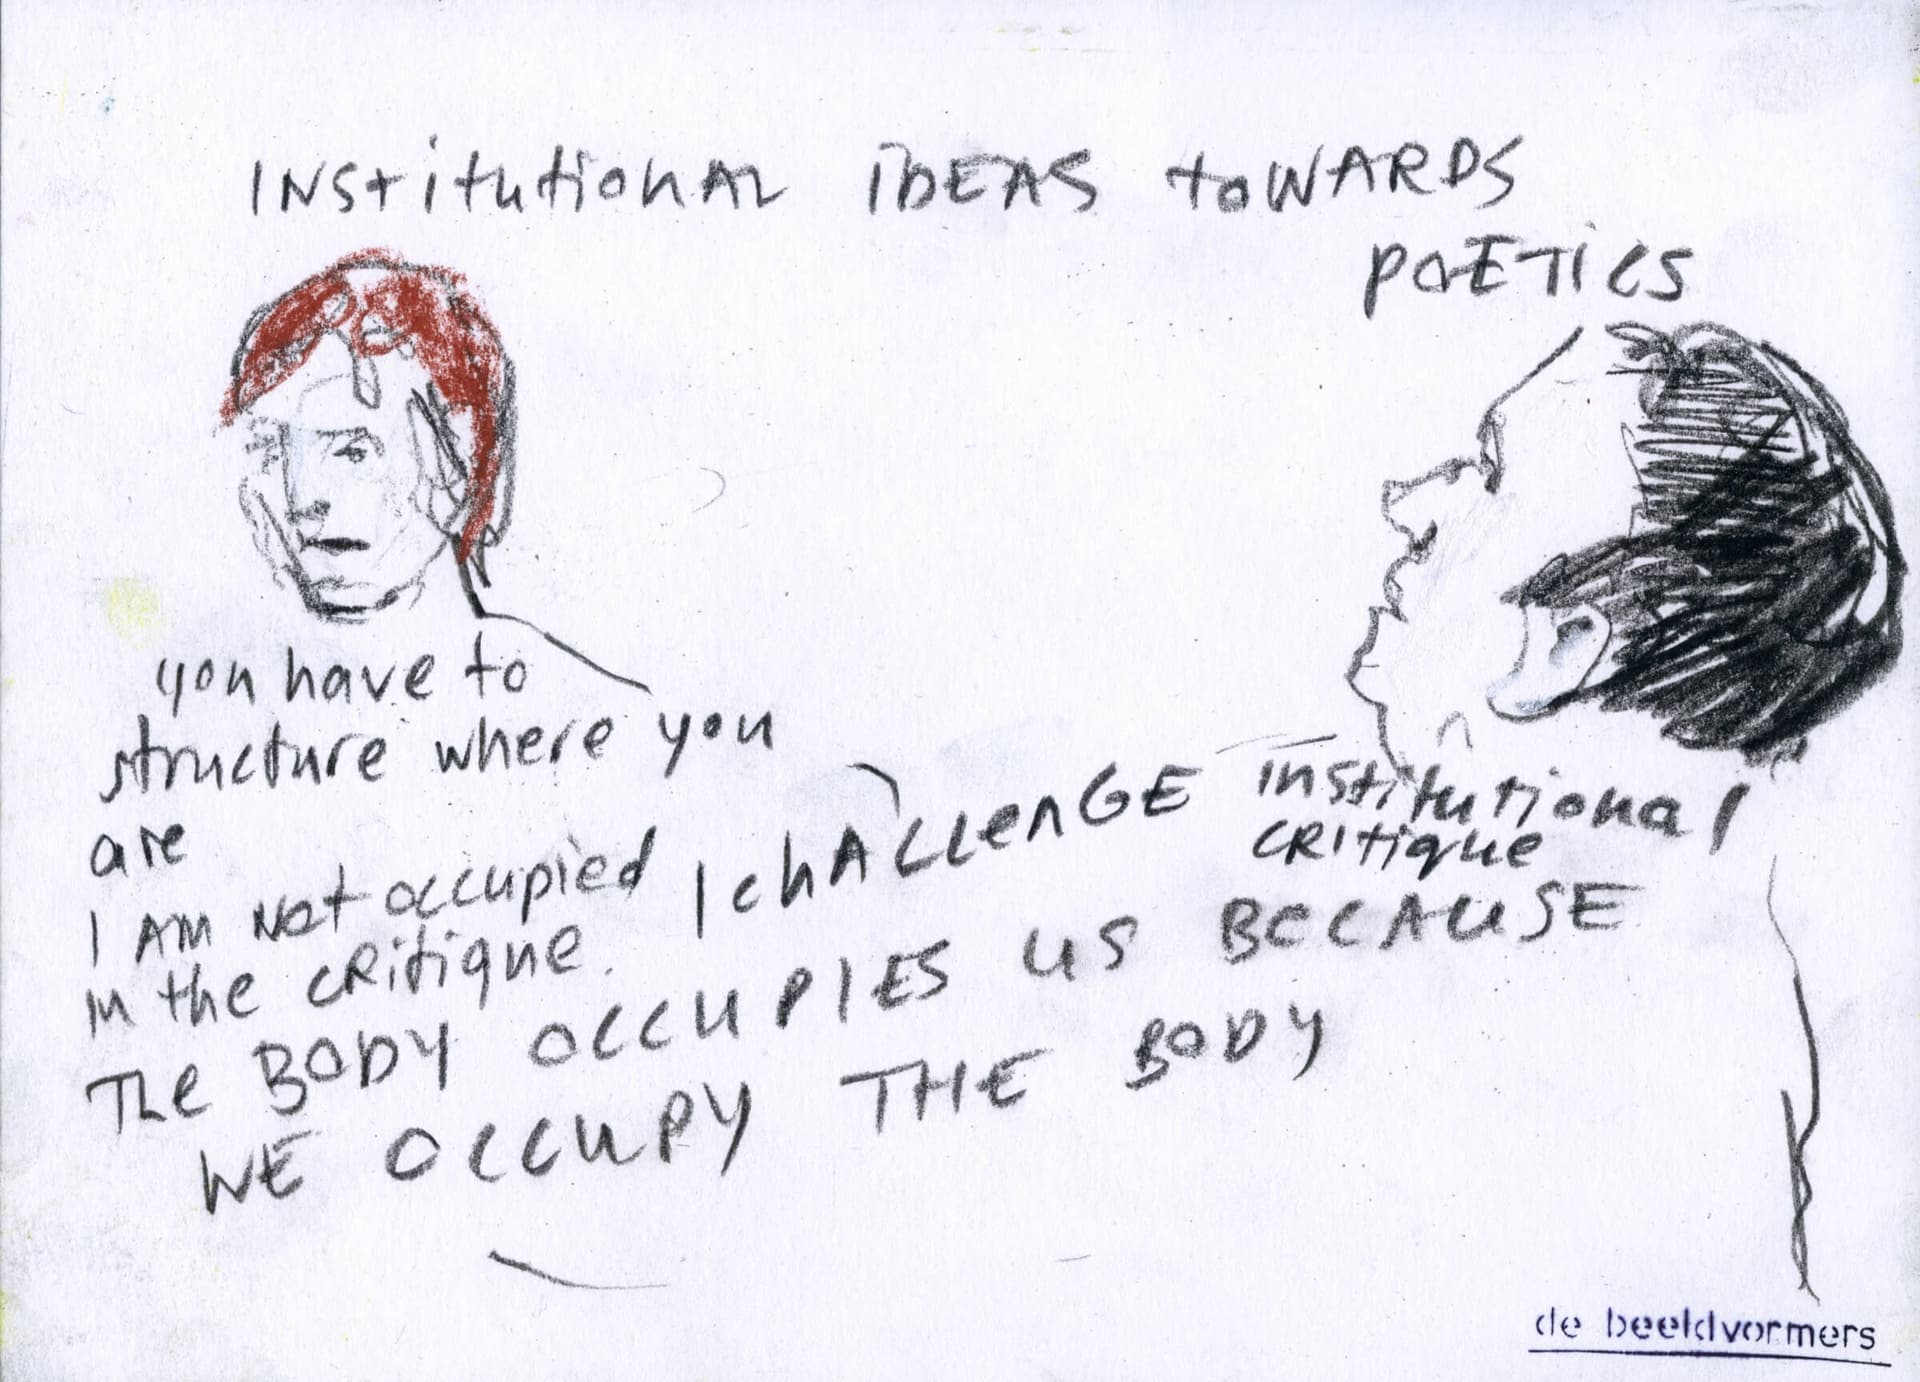 INstitutional iDEAS toWARDS
POETiCS
you have to
structure where you
are
I AM Not occupied
in the critique. I chALLenGE institutional
critique
The BODY OCCUPIES US BECAUSE
WE OCCUPY THE BODY
de beeldvormers